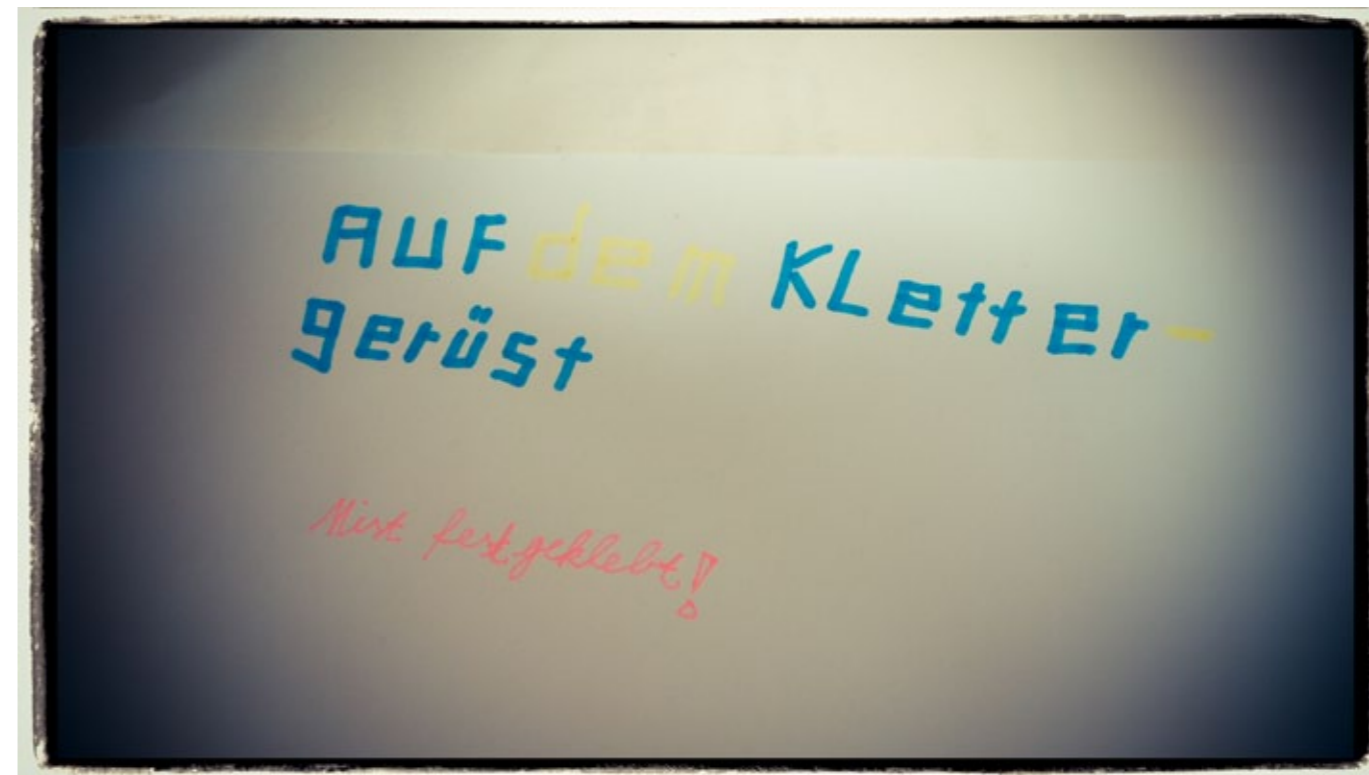 Auf dem KLetter-
gerüst
Mist festgeklebt!